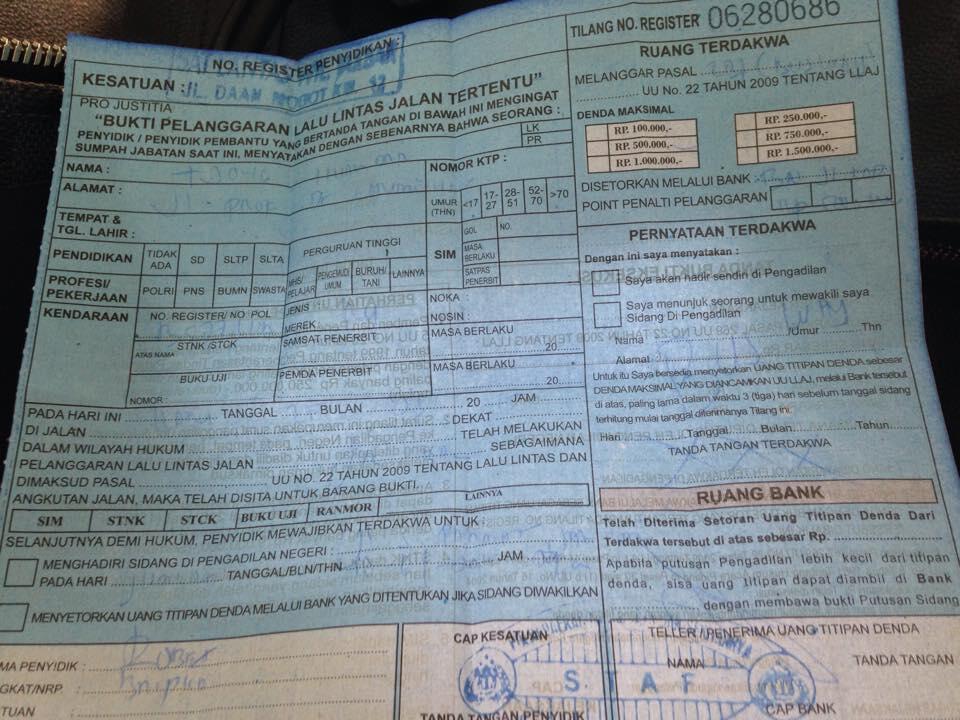 NO. REGISTER PENYIDIKAN :
KESATUAN :
JL. DAAN MOGOT KM. 12
PRO JUSTITIA
"BUKTI PELANGGARAN LALU LINTAS JALAN TERTENTU"
PENYIDIK / PENYIDIK PEMBANTU YANG BERTANDA TANGAN DI BAWAH INI MENGINGAT
SUMPAH JABATAN SAAT INI, MENYATAKAN DENGAN SEBENARNYA BAHWA SEORANG :
LK
PR
NAMA :
NOMOR KTP :
ALAMAT :
UMUR (THN) <17 17-27 28-51 52-70 >70
TEMPAT & TGL. LAHIR :
SIM
GOL NO.
MASA BERLAKU
SATPAS PENERBIT
PENDIDIKAN TIDAK ADA SD SLTP SLTA PERGURUAN TINGGI
PROFESI/ PEKERJAAN POLRI PNS BUMN SWASTA MHS/ PELAJAR PENGEMUDI UMUM BURUH/ TANI LAINNYA
KENDARAAN
NO. REGISTER/ NO POL
JENIS
MEREK
NOKA :
NOSIN :
STNK / STCK
ATAS NAMA
SAMSAT PENERBIT
MASA BERLAKU
20
BUKU UJI
NOMOR :
PEMDA PENERBIT
MASA BERLAKU
20
PADA HARI INI TANGGAL BULAN 20 JAM
DI JALAN DEKAT
DALAM WILAYAH HUKUM TELAH MELAKUKAN
PELANGGARAN LALU LINTAS JALAN SEBAGAIMANA
DIMAKSUD PASAL UU NO. 22 TAHUN 2009 TENTANG LALU LINTAS DAN
ANGKUTAN JALAN, MAKA TELAH DISITA UNTUK BARANG BUKTI.
SIM STNK STCK BUKU UJI RANMOR LAINNYA
SELANJUTNYA DEMI HUKUM, PENYIDIK MEWAJIBKAN TERDAKWA UNTUK :
MENGHADIRI SIDANG DI PENGADILAN NEGERI :
PADA HARI TANGGAL/BLN/THN JAM
MENYETORKAN UANG TITIPAN DENDA MELALUI BANK YANG DITENTUKAN JIKA SIDANG DIWAKILKAN
MA PENYIDIK :
GKAT/NRP. :
TUAN :
CAP KESATUAN
STAF
TANDA TANGAN PENYIDIK
TILANG NO. REGISTER 06280686
RUANG TERDAKWA
MELANGGAR PASAL
UU No. 22 TAHUN 2009 TENTANG LLAJ
DENDA MAKSIMAL
RP. 100.000,- RP. 250.000,-
RP. 500.000,- RP. 750.000,-
RP. 1.000.000,- RP. 1.500.000,-
DISETORKAN MELALUI BANK
POINT PENALTI PELANGGARAN
PERNYATAAN TERDAKWA
Dengan ini saya menyatakan :
Saya akan hadir sendiri di Pengadilan
Saya menunjuk seorang untuk mewakili saya
Sidang Di Pengadilan
Nama /Umur Thn
Alamat
Untuk itu Saya bersedia menyetorkan UANG TITIPAN DENDA sebesar
DENDA MAKSIMAL YANG DIANCAMKAN UU LLAJ, melalui Bank tersebut
di atas, paling lama dalam waktu 3 (tiga) hari sebelum tanggal sidang
terhitung mulai tanggal diterimanya Tilang ini.
Hari Tanggal Bulan Tahun
TANDA TANGAN TERDAKWA
RUANG BANK
Telah Diterima Setoran Uang Titipan Denda Dari
Terdakwa tersebut di atas sebesar Rp.
Apabila putusan Pengadilan lebih kecil dari titipan
denda, sisa uang titipan dapat diambil di Bank
dengan membawa bukti Putusan Sidang
TELLER / PENERIMA UANG TITIPAN DENDA
NAMA TANDA TANGAN
CAP BANK